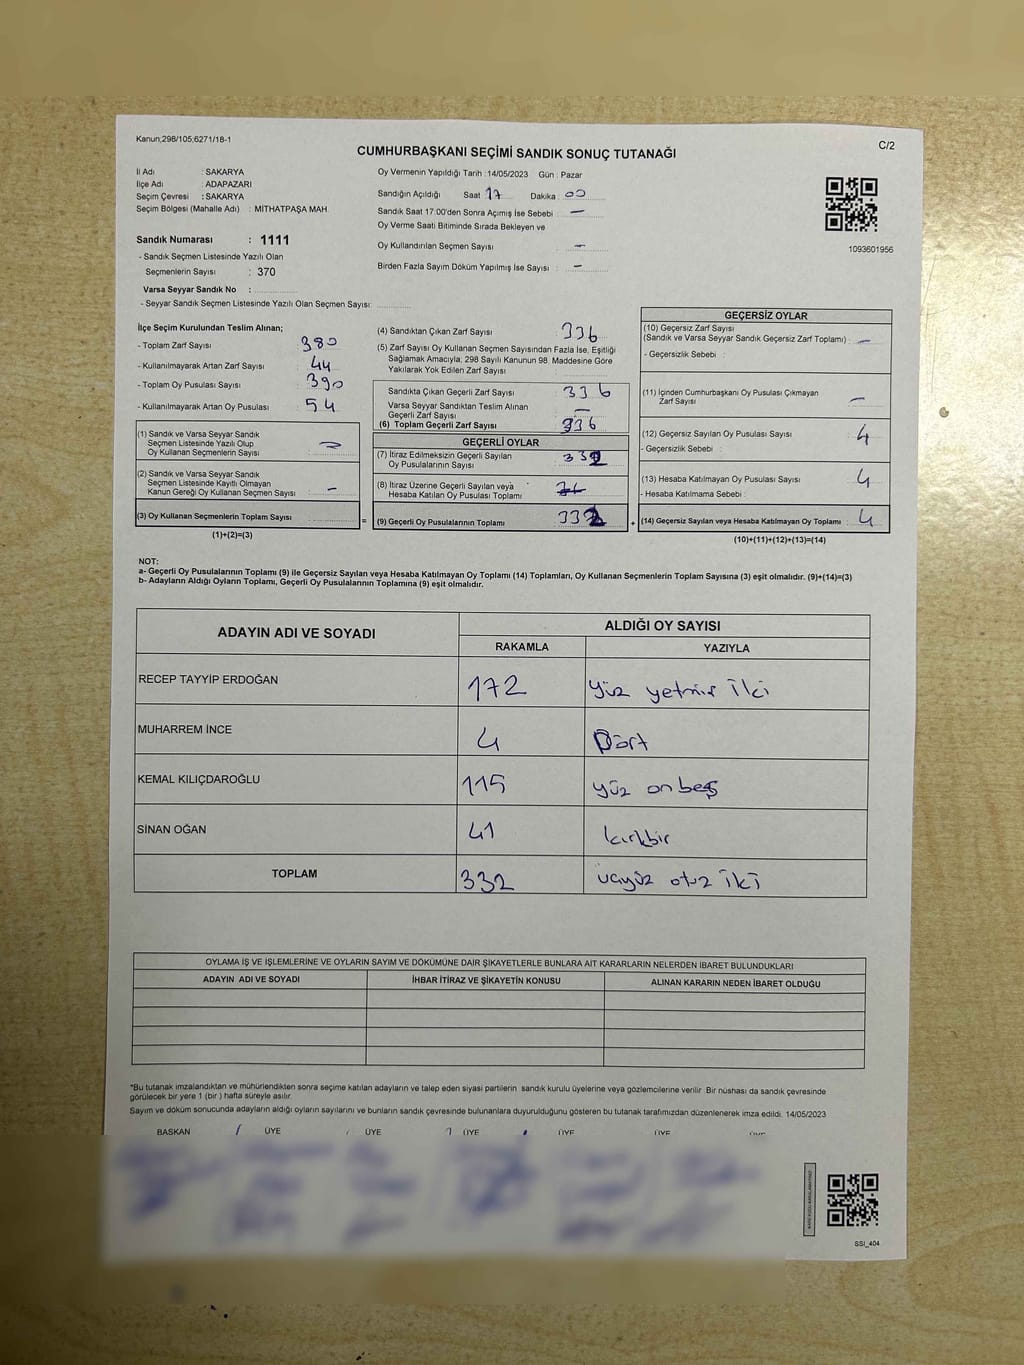 Kanun;298/105;6271/18-1
C/2
CUMHURBAŞKANI SEÇİMİ SANDIK SONUÇ TUTANAĞI
İl Adı : SAKARYA
İlçe Adı : ADAPAZARI
Seçim Çevresi : SAKARYA
Seçim Bölgesi (Mahalle Adı) : MİTHATPAŞA MAH.
Sandık Numarası : 1111
- Sandık Seçmen Listesinde Yazılı Olan
Seçmenlerin Sayısı : 370
Varsa Seyyar Sandık No :
- Seyyar Sandık Seçmen Listesinde Yazılı Olan Seçmen Sayısı:
Oy Vermenin Yapıldığı Tarih : 14/05/2023 Gün : Pazar
Sandığın Açıldığı Saat 17 Dakika : 00
Sandık Saat 17.00'den Sonra Açımış İse Sebebi : —
Oy Verme Saati Bitiminde Sırada Bekleyen ve
Oy Kullandırılan Seçmen Sayısı : —
Birden Fazla Sayım Döküm Yapılmış İse Sayısı : —
1093601956
İlçe Seçim Kurulundan Teslim Alınan;
- Toplam Zarf Sayısı : 380
- Kullanılmayarak Artan Zarf Sayısı : 44
- Toplam Oy Pusulası Sayısı : 390
- Kullanılmayarak Artan Oy Pusulası : 54
(1) Sandık ve Varsa Seyyar Sandık
Seçmen Listesinde Yazılı Olup
Oy Kullanan Seçmenlerin Sayısı : —
(2) Sandık ve Varsa Seyyar Sandık
Seçmen Listesinde Kayıtlı Olmayan
Kanun Gereği Oy Kullanan Seçmen Sayısı : —
(3) Oy Kullanan Seçmenlerin Toplam Sayısı :
(1)+(2)=(3)
(4) Sandıktan Çıkan Zarf Sayısı : 336
(5) Zarf Sayısı Oy Kullanan Seçmen Sayısından Fazla İse, Eşitliği
Sağlamak Amacıyla, 298 Sayılı Kanunun 98. Maddesine Göre
Yakılarak Yok Edilen Zarf Sayısı :
Sandıkta Çıkan Geçerli Zarf Sayısı : 336
Varsa Seyyar Sandıktan Teslim Alınan
Geçerli Zarf Sayısı : —
(6) Toplam Geçerli Zarf Sayısı : 336
GEÇERLİ OYLAR
(7) İtiraz Edilmeksizin Geçerli Sayılan
Oy Pusulalarının Sayısı : 332
(8) İtiraz Üzerine Geçerli Sayılan veya
Hesaba Katılan Oy Pusulası Toplamı :
=
(9) Geçerli Oy Pusulalarının Toplamı : 332
+
GEÇERSİZ OYLAR
(10) Geçersiz Zarf Sayısı
(Sandık ve Varsa Seyyar Sandık Geçersiz Zarf Toplamı) : —
- Geçersizlik Sebebi :
(11) İçinden Cumhurbaşkanı Oy Pusulası Çıkmayan
Zarf Sayısı : —
(12) Geçersiz Sayılan Oy Pusulası Sayısı : 4
- Geçersizlik Sebebi :
(13) Hesaba Katılmayan Oy Pusulası Sayısı : 4
- Hesaba Katılmama Sebebi :
(14) Geçersiz Sayılan veya Hesaba Katılmayan Oy Toplamı : 4
(10)+(11)+(12)+(13)=(14)
NOT:
a- Geçerli Oy Pusulalarının Toplamı (9) ile Geçersiz Sayılan veya Hesaba Katılmayan Oy Toplamı (14) Toplamları, Oy Kullanan Seçmenlerin Toplam Sayısına (3) eşit olmalıdır. (9)+(14)=(3)
b- Adayların Aldığı Oyların Toplamı, Geçerli Oy Pusulalarının Toplamına (9) eşit olmalıdır.
ADAYIN ADI VE SOYADI
ALDIĞI OY SAYISI
RAKAMLA YAZIYLA
RECEP TAYYİP ERDOĞAN 172 yüz yetmiş iki
MUHARREM İNCE 4 Dört
KEMAL KILIÇDAROĞLU 115 yüz on beş
SİNAN OĞAN 41 kırkbir
TOPLAM 332 üçyüz otuz iki
OYLAMA İŞ VE İŞLEMLERİNE VE OYLARIN SAYIM VE DÖKÜMÜNE DAİR ŞİKAYETLERLE BUNLARA AİT KARARLARIN NELERDEN İBARET BULUNDUKLARI
ADAYIN ADI VE SOYADI İHBAR İTİRAZ VE ŞİKAYETİN KONUSU ALINAN KARARIN NEDEN İBARET OLDUĞU
*Bu tutanak imzalandıktan ve mühürlendikten sonra seçime katılan adayların ve talep eden siyasi partilerin sandık kurulu üyelerine veya gözlemcilerine verilir. Bir nüshası da sandık çevresinde
görülecek bir yere 1 (bir) hafta süreyle asılır.
Sayım ve döküm sonucunda adayların aldığı oyların sayılarını ve bunların sandık çevresinde bulunanlara duyurulduğunu gösteren bu tutanak tarafımızdan düzenlenerek imza edildi. 14/05/2023
BAŞKAN ÜYE ÜYE ÜYE ÜYE ÜYE ÜYE
SSİ_404